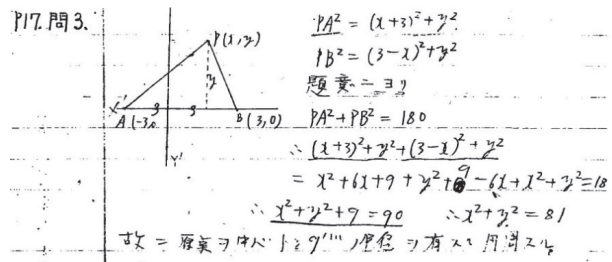 P17. 問3.
P(x, y)
y
X'
3 3
A(-3,0
B(3,0)
Y'
PA² = (x+3)² + y²
PB² = (3-x)² + y²
題意ニヨリ
PA² + PB² = 180
∴ (x+3)² + y² + (3-x)² + y²
= x² + 6x + 9 + y² + 9 - 6x + x² + y² = 18
∴ x² + y² + 9 = 90 ∴ x² + y² = 81
故ニ 原点ヲ中心トシ 9 半径ヲ有スル 円周